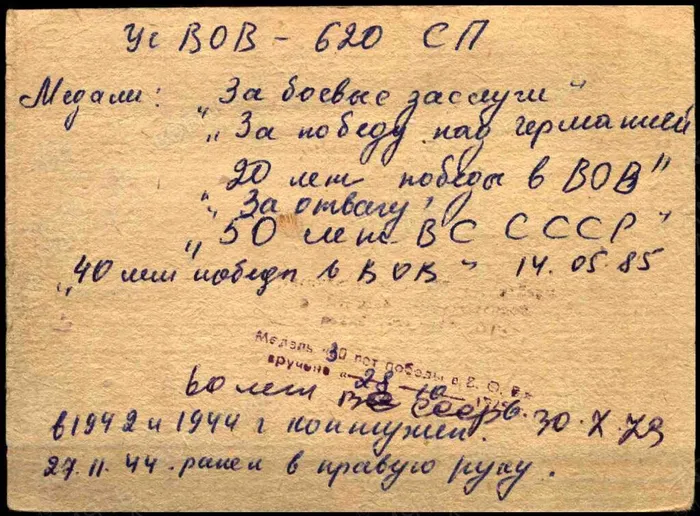 Уч ВОВ – 620 СП
Медали: „За боевые заслуги"
„За победу над германией
20 лет победы в ВОВ"
„За отвагу"
„50 лет ВС СССР"
„40 лет победы в ВОВ" 14.05.85
Медаль «30 лет победы в В. О. В.»
вручена « 28
60 лет ВС СССР. 30.X.79
в 1942 и 1944 г контужен.
27.11.44. ранен в правую руку.